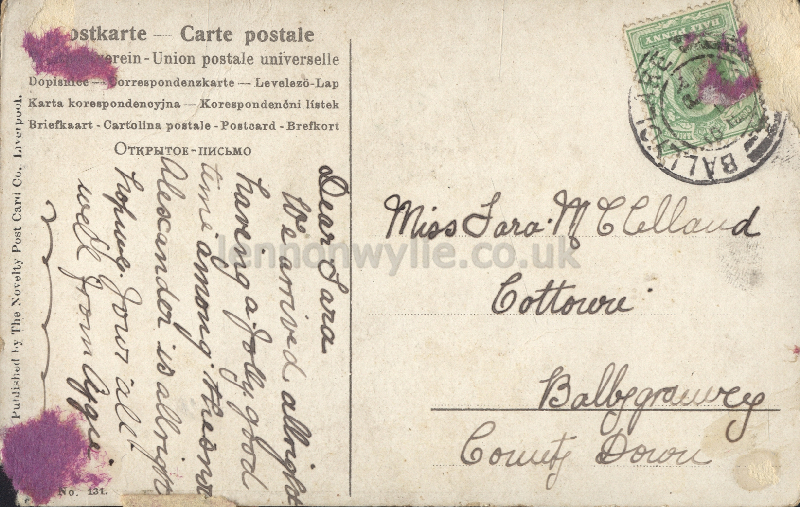 ostkarte — Carte postale
verein - Union postale universelle
Dopisnice — Correspondenzkarte — Levelező-Lap
Karta korespondencyjna — Korespondenční listek
Briefkaart - Cartolina postale - Postcard - Brefkort
Открытое-письмо
Published by The Novelty Post Card Co., Liverpool.
No. 131.
Dear Sara
We arrived allright
having a Jolly good
time among the
Alexander is allright
hoping your all
well from
HALF PENNY
BALLYCLARE
Miss Sara McClelland
Cottown
Ballygrainey
County Down
lennonwylie.co.uk